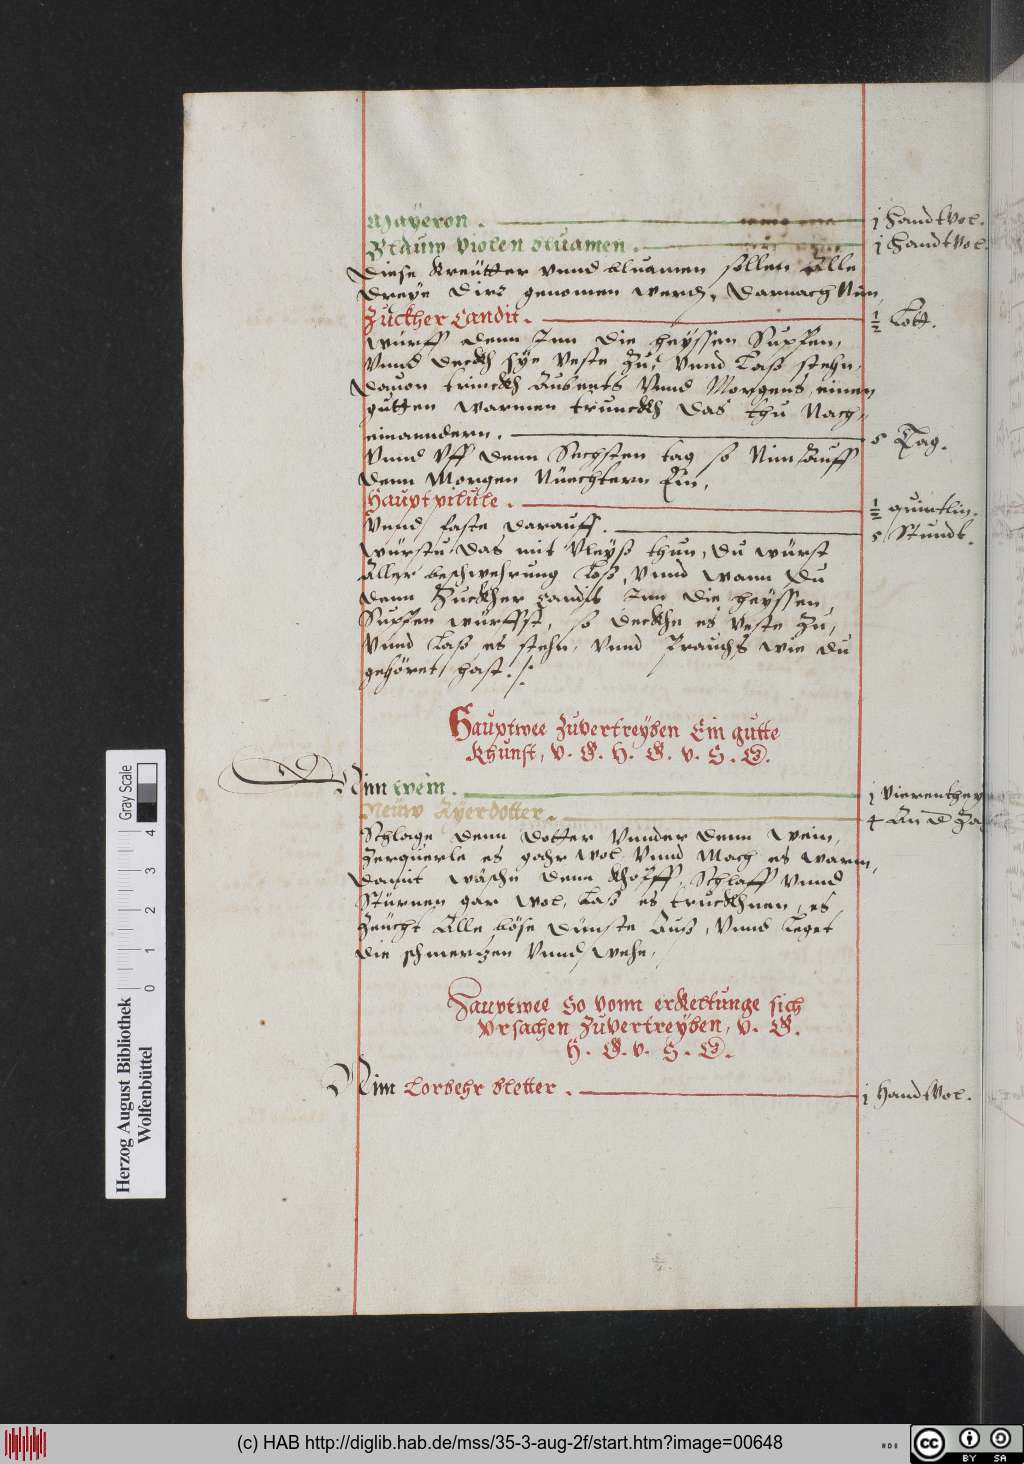 Mayeron. j handtvol.
Blauw violen bluamen. j handtvol.
Diese Kreütter vnnd bluamen sollen Alle
dreye dirr genomen werden, darnach Nim,
Zuckher Candit. ½ Lott.
würff denn Inn die heyssen Supffen,
Vnnd deckh sye Veste Zu, Vnnd Laß stehn,
dauon trinckh Aubents Vnnd Morgens, einen
gutten warmen trunckh das thu Nach
einanndern. 5 Tag.
Vnnd Vff denn Sechsten tag so Nim Auff
denn Morgen Nüechtern Ein,
Hauptpilule. ½ quintlin.
Vnnd faste darauff. 5 Stundt.
würstu das mit Vleyß thun, du würst
Aller beschwehrung Loß, Vnnd wann du
denn Zuckher Candit Inn die heyssen
Supffen würffst, so deckhe es Veste Zu,
Vnnd Laß es stehn, Vnnd Brauchs wie du
gehöret hast.
Hauptwee Zuvertreyben Ein gutte
Khunst, v. G. H. G. v. S. G.
Nim wein. j Vierentheyl
Neuw Ayerdotter. 4
Schlage denn dotter Vnnder denn Wein,
Zerquerle es gahr wol Vnnd Mach es warm,
damit wäsche denn Khopff, Schlaff Vnnd
Stürnen gar wol, Laß es truckhnen, es
Zeücht Alle böse dünste Auß, Vnnd Leget
die schmertzen Vnnd wehe.
Hauptwee So vonn erKeltunge sich
Vrsachen Zuvertreyben, v. G.
H. G. v. S. G.
Nim Lorbehr bletter. j Handtvol.
Herzog August Bibliothek
Wolfenbüttel
0 1 2 3 4
Gray Scale
(c) HAB http://diglib.hab.de/mss/35-3-aug-2f/start.htm?image=00648
cc BY SA